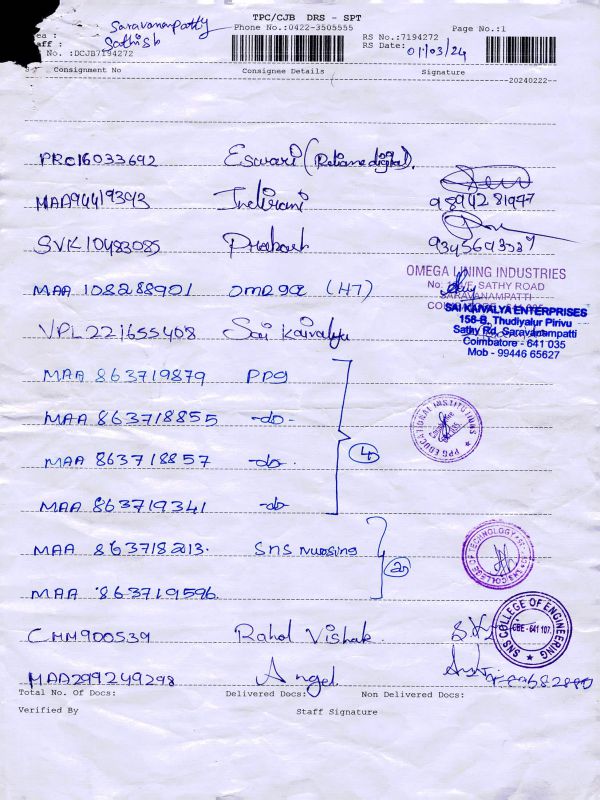 TPC/CJB DRS - SPT
Saravanampatty
Phone No.:0422-3505555 Page No.:1
Sathish
RS No.:7194272
RS Date: 01/03/24
No. :DCJB7194272
Consignment No Consignee Details Signature
20240222--
PRC16033692 Eswari (Reliance digital).
MAA94419393 Indirani 9894281947
SVK10483085 Prabout
MAA 108288901 omega (H7)
OMEGA LINING INDUSTRIES
SATHY ROAD
SARAVANAMPATTI
VPL221655408 Sai Kaivalya
SAI KAIVALYA ENTERPRISES
158-B, Thudiyalur Pirivu
Sathy Rd, Saravanampatti
Coimbatore - 641 035
Mob - 99446 65627
MAA 863719879 PPG
MAA 863718855 -do-
MAA 863718857 -do-
MAA 863719341 -do-
4
PPG EDUCATIONAL INSTITUTIONS
MAA 863718213. SNS nursing
MAA 863719596.
2
COLLEGE OF TECHNOLOGY
CMM900539 Rahol Vishak.
SNS COLLEGE OF ENGINEERING
CBE - 641 107.
MAA299249298 Angel
Total No. Of Docs: Delivered Docs: Non Delivered Docs:
Verified By Staff Signature